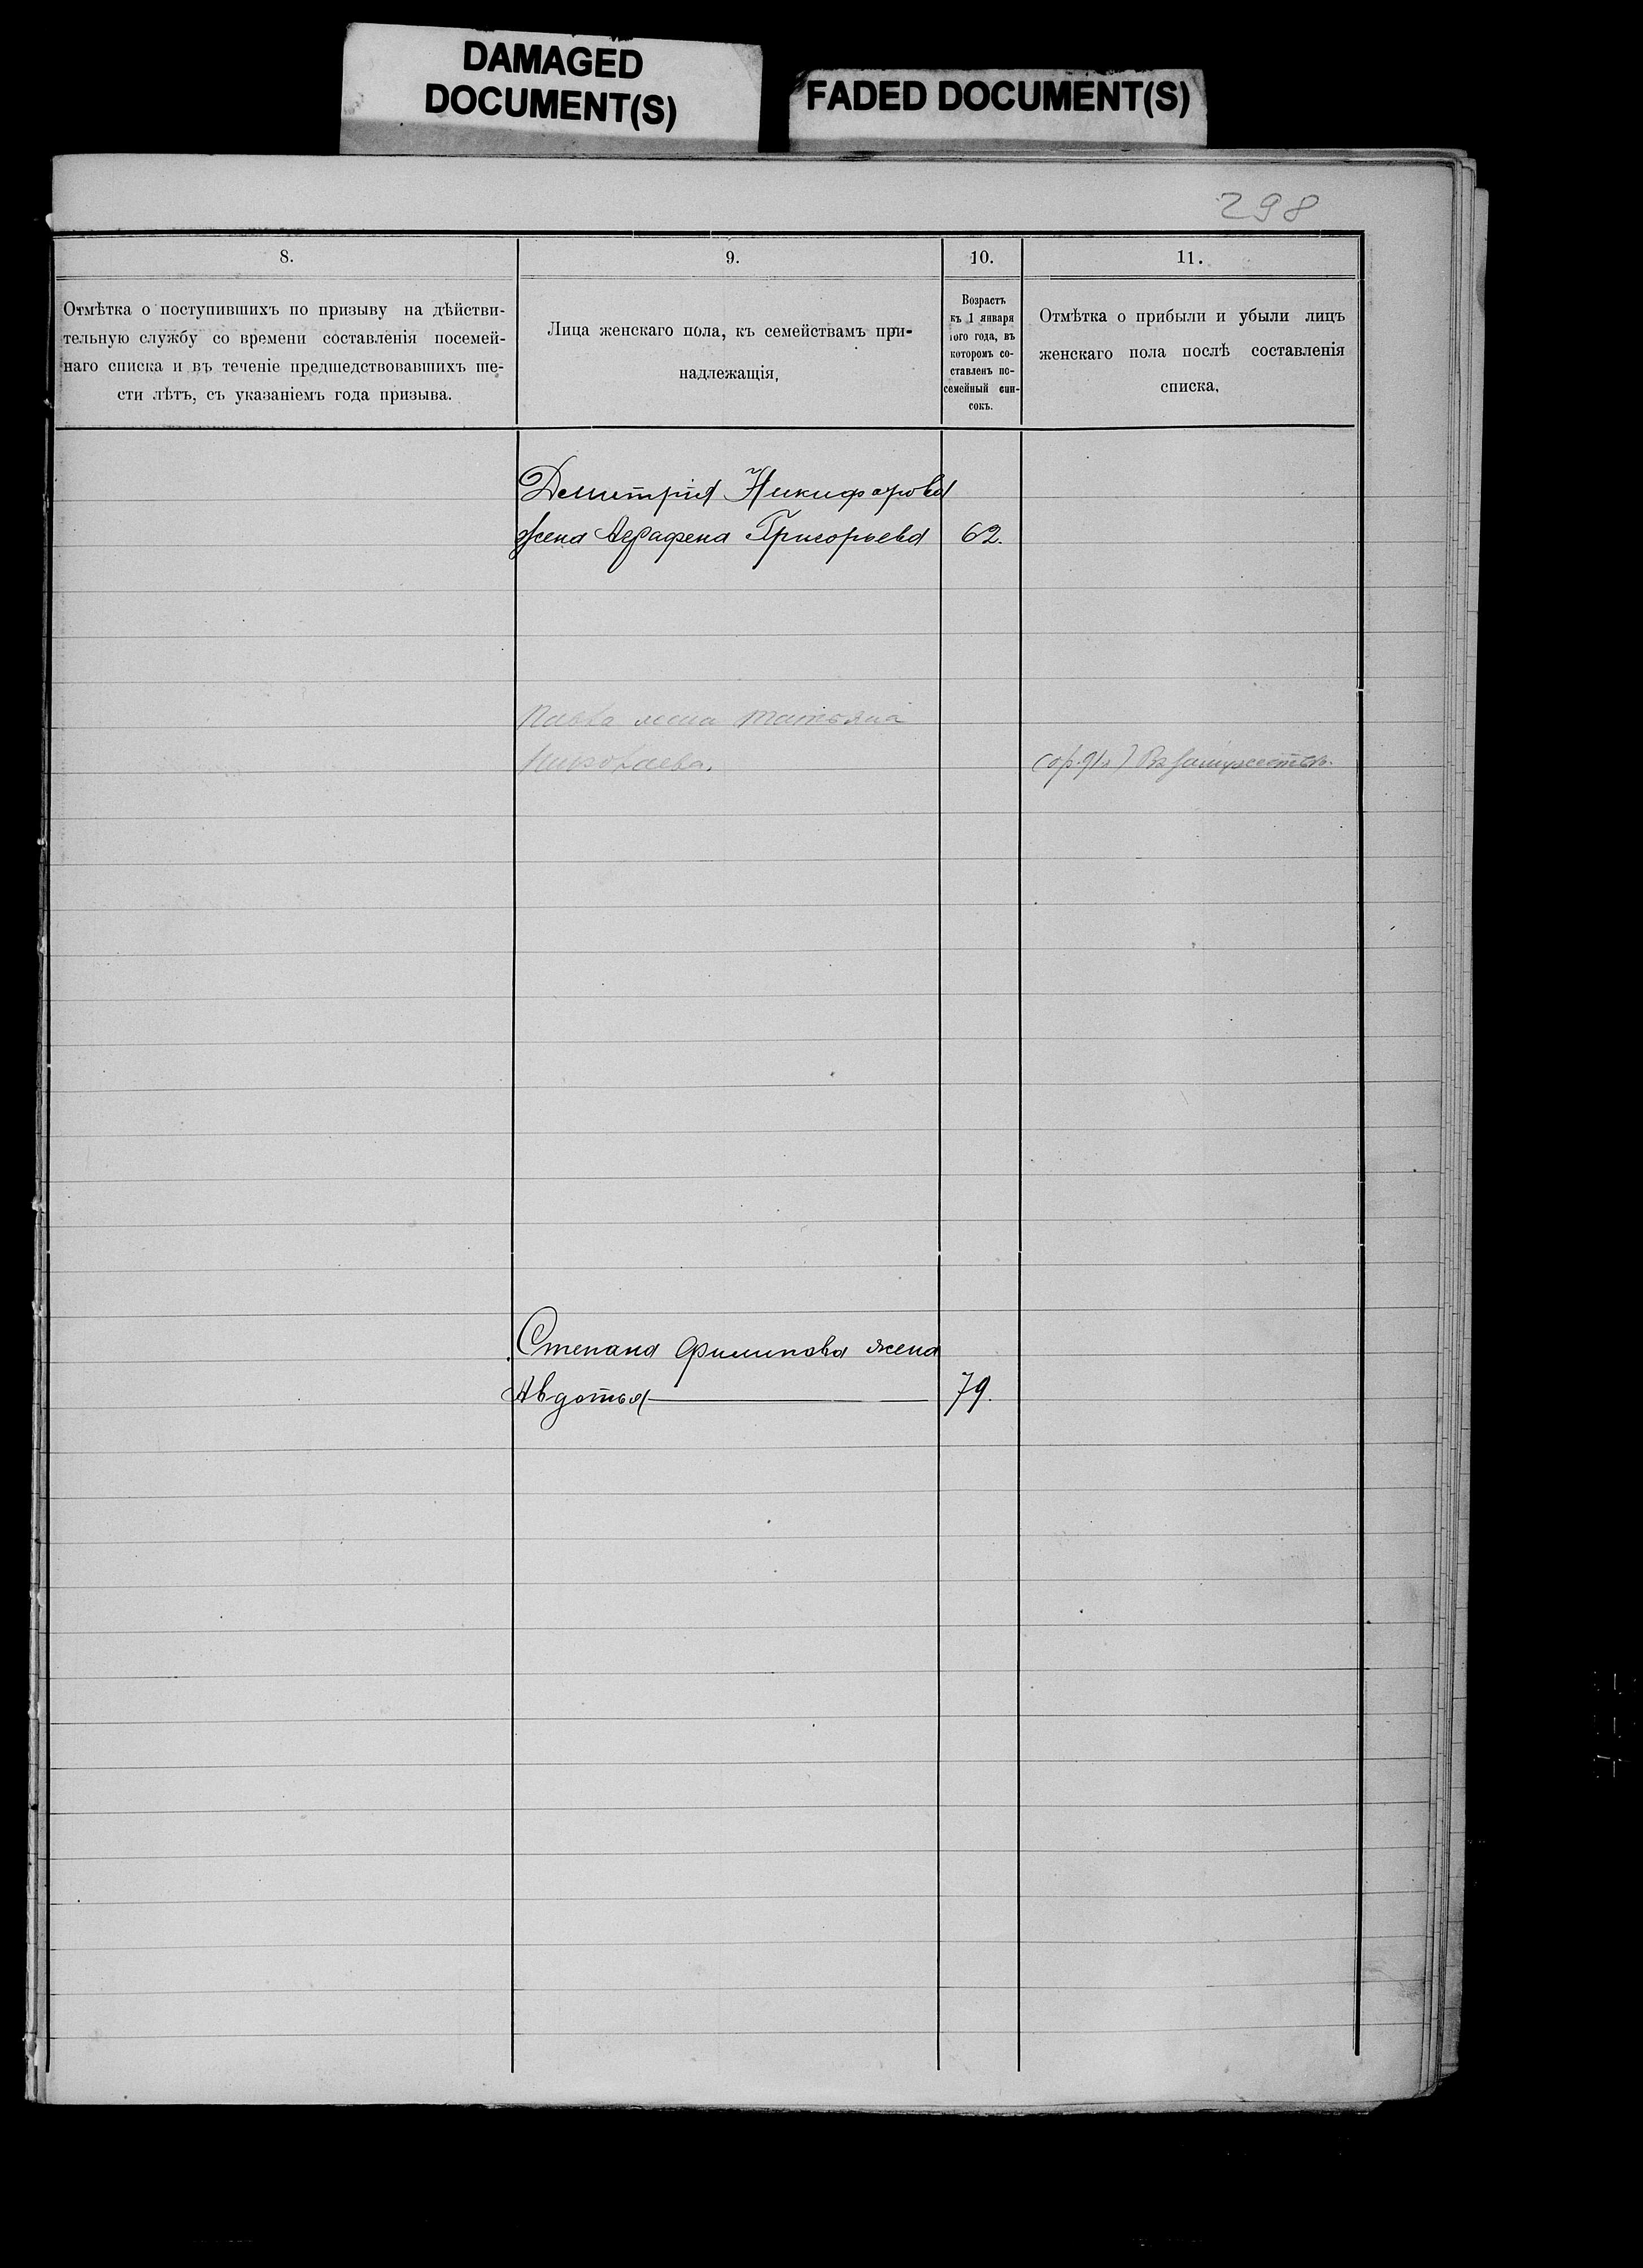 DAMAGED
DOCUMENT(S)
FADED DOCUMENT(S)
298
8.
9.
10.
11.
Отмѣтка о поступившихъ по призыву на дѣйстви-
тельную службу со времени составленія посемей-
наго списка и въ теченіе предшедствовавшихъ ше-
сти лѣтъ, съ указаніемъ года призыва.
Лица женскаго пола, къ семействамъ при-
надлежащія,
Возрастъ
къ 1 января
того года, въ
которомъ со-
ставленъ по-
семейный спи-
сокъ.
Отмѣтка о прибыли и убыли лицъ
женскаго пола послѣ составленія
списка.
Дмитрія Никифорова
жена Аграфена Григорьева 62.
Павла жена Татьяна
Николаева.
Въ замужествѣ.
Степана Филипова жена
Авдотья 79.